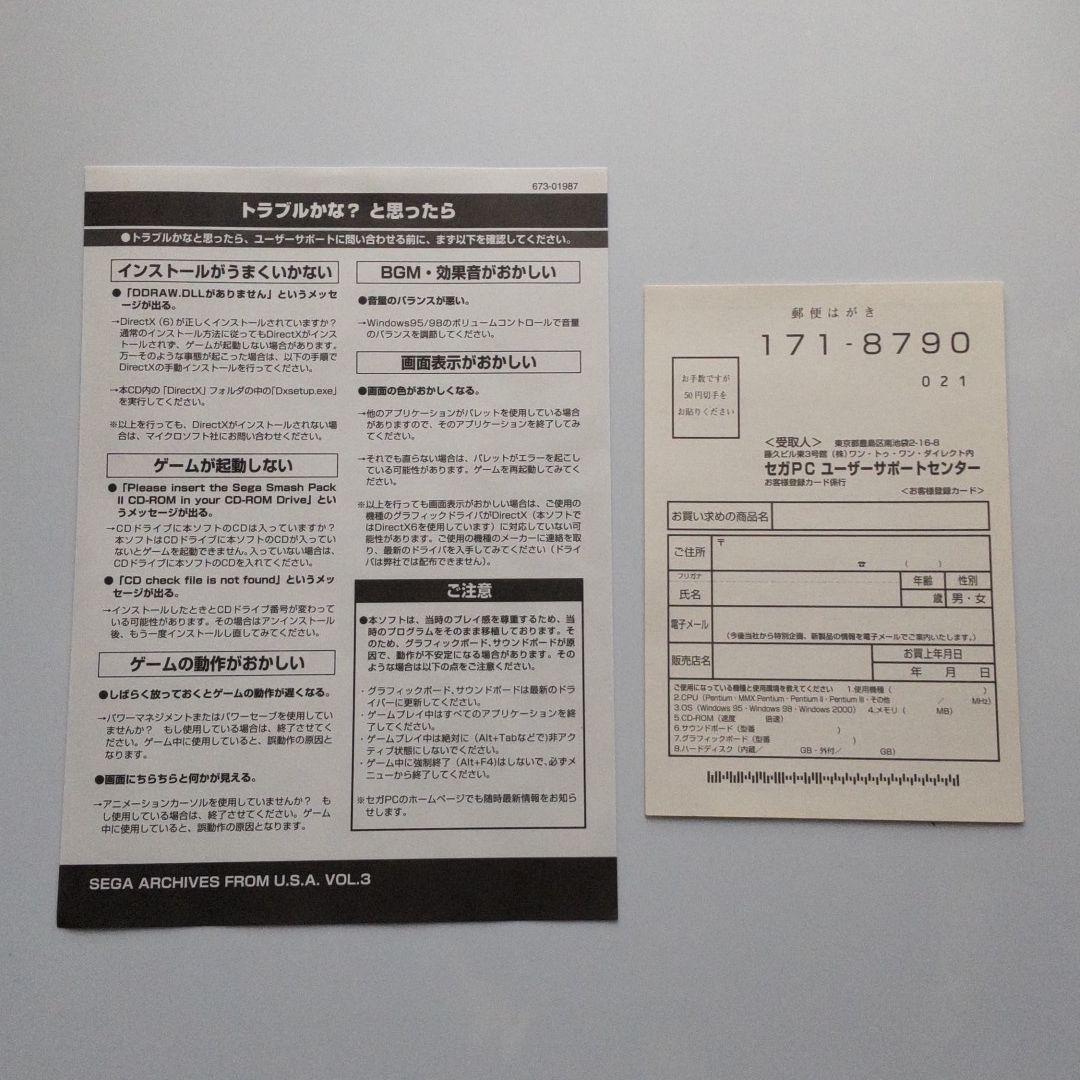 673-01987
トラブルかな？ と思ったら
●トラブルかなと思ったら、ユーザーサポートに問い合わせる前に、まず以下を確認してください。
インストールがうまくいかない
●「DDRAW.DLLがありません」というメッセ
ージが出る。
→DirectX（6）が正しくインストールされていますか？
通常のインストール方法に従ってもDirectXがインス
トールされず、ゲームが起動しない場合があります。
万一そのような事態が起こった場合は、以下の手順で
DirectXの手動インストールを行ってください。
→本CD内の「DirectX」フォルダの中の「Dxsetup.exe」
を実行してください。
※以上を行っても、DirectXがインストールされない場
合は、マイクロソフト社にお問い合わせください。
ゲームが起動しない
●「Please insert the Sega Smash Pack
II CD-ROM in your CD-ROM Drive」とい
うメッセージが出る。
→CDドライブに本ソフトのCDは入っていますか？
本ソフトはCDドライブに本ソフトのCDが入ってい
ないとゲームを起動できません。入っていない場合は、
CDドライブに本ソフトのCDを入れてください。
●「CD check file is not found」というメッ
セージが出る。
→インストールしたときとCDドライブ番号が変わって
いる可能性があります。その場合はアンインストール
後、もう一度インストールし直してみてください。
ゲームの動作がおかしい
●しばらく放っておくとゲームの動作が遅くなる。
→パワーマネジメントまたはパワーセーブを使用してい
ませんか？ もし使用している場合は、終了させてく
ださい。ゲーム中に使用していると、誤動作の原因と
なります。
●画面にちらちらと何かが見える。
→アニメーションカーソルを使用していませんか？ も
し使用している場合は、終了させてください。ゲーム
中に使用していると、誤動作の原因となります。
BGM・効果音がおかしい
●音量のバランスが悪い。
→Windows95/98のボリュームコントロールで音量
のバランスを調節してください。
画面表示がおかしい
●画面の色がおかしくなる。
→他のアプリケーションがパレットを使用している場合
がありますので、そのアプリケーションを終了してみ
てください。
→それでも直らない場合は、パレットがエラーを起こし
ている可能性があります。ゲームを再起動してみてく
ださい。
※以上を行っても画面表示がおかしい場合は、ご使用の
機種のグラフィックドライバがDirectX（本ソフトで
はDirectX6を使用しています）に対応していない可
能性があります。ご使用の機種のメーカーに連絡を取
り、最新のドライバを入手してみてください（ドライ
バは弊社では配布できません）。
ご注意
●本ソフトは、当時のプレイ感を尊重するため、当
時のプログラムをそのまま移植しております。そ
のため、グラフィックボード、サウンドボードが原
因で、動作が不安定になる場合があります。その
ような場合は以下の点をご注意ください。
・グラフィックボード、サウンドボードは最新のドラ
イバーに更新してください。
・ゲームプレイ中はすべてのアプリケーションを終
了してください。
・ゲームプレイ中は絶対に（Alt+Tabなどで）非アク
ティブ状態にしないでください。
・ゲーム中に強制終了（Alt+F4）はしないで、必ずメ
ニューから終了してください。
※セガPCのホームページでも随時最新情報をお知ら
せします。
SEGA ARCHIVES FROM U.S.A. VOL.3
郵便はがき
171-8790
021
お手数ですが
50円切手を
お貼りください
＜受取人＞ 東京都豊島区南池袋2-16-8
藤久ビル東3号館（株）ワン・トゥ・ワン・ダイレクト内
セガPC ユーザーサポートセンター
お客様登録カード係行
＜お客様登録カード＞
お買い求めの商品名
ご住所
〒
☎ （ ）
フリガナ
氏名
年齢 性別
歳 男・女
電子メール
（今後当社から特別企画、新製品の情報を電子メールでご案内いたします。）
販売店名
お買上年月日
年 月 日
ご使用になっている機種と使用環境を教えてください 1.使用機種（ ）
2.CPU（Pentium・MMX Pentium・Pentium II・Pentium III・その他 ／ MHz）
3.OS（Windows 95・Windows 98・Windows 2000） 4.メモリ（ MB）
5.CD-ROM（速度 倍速）
6.サウンドボード（型番 ）
7.グラフィックボード（型番 ）
8.ハードディスク（内蔵／ GB・外付／ GB）